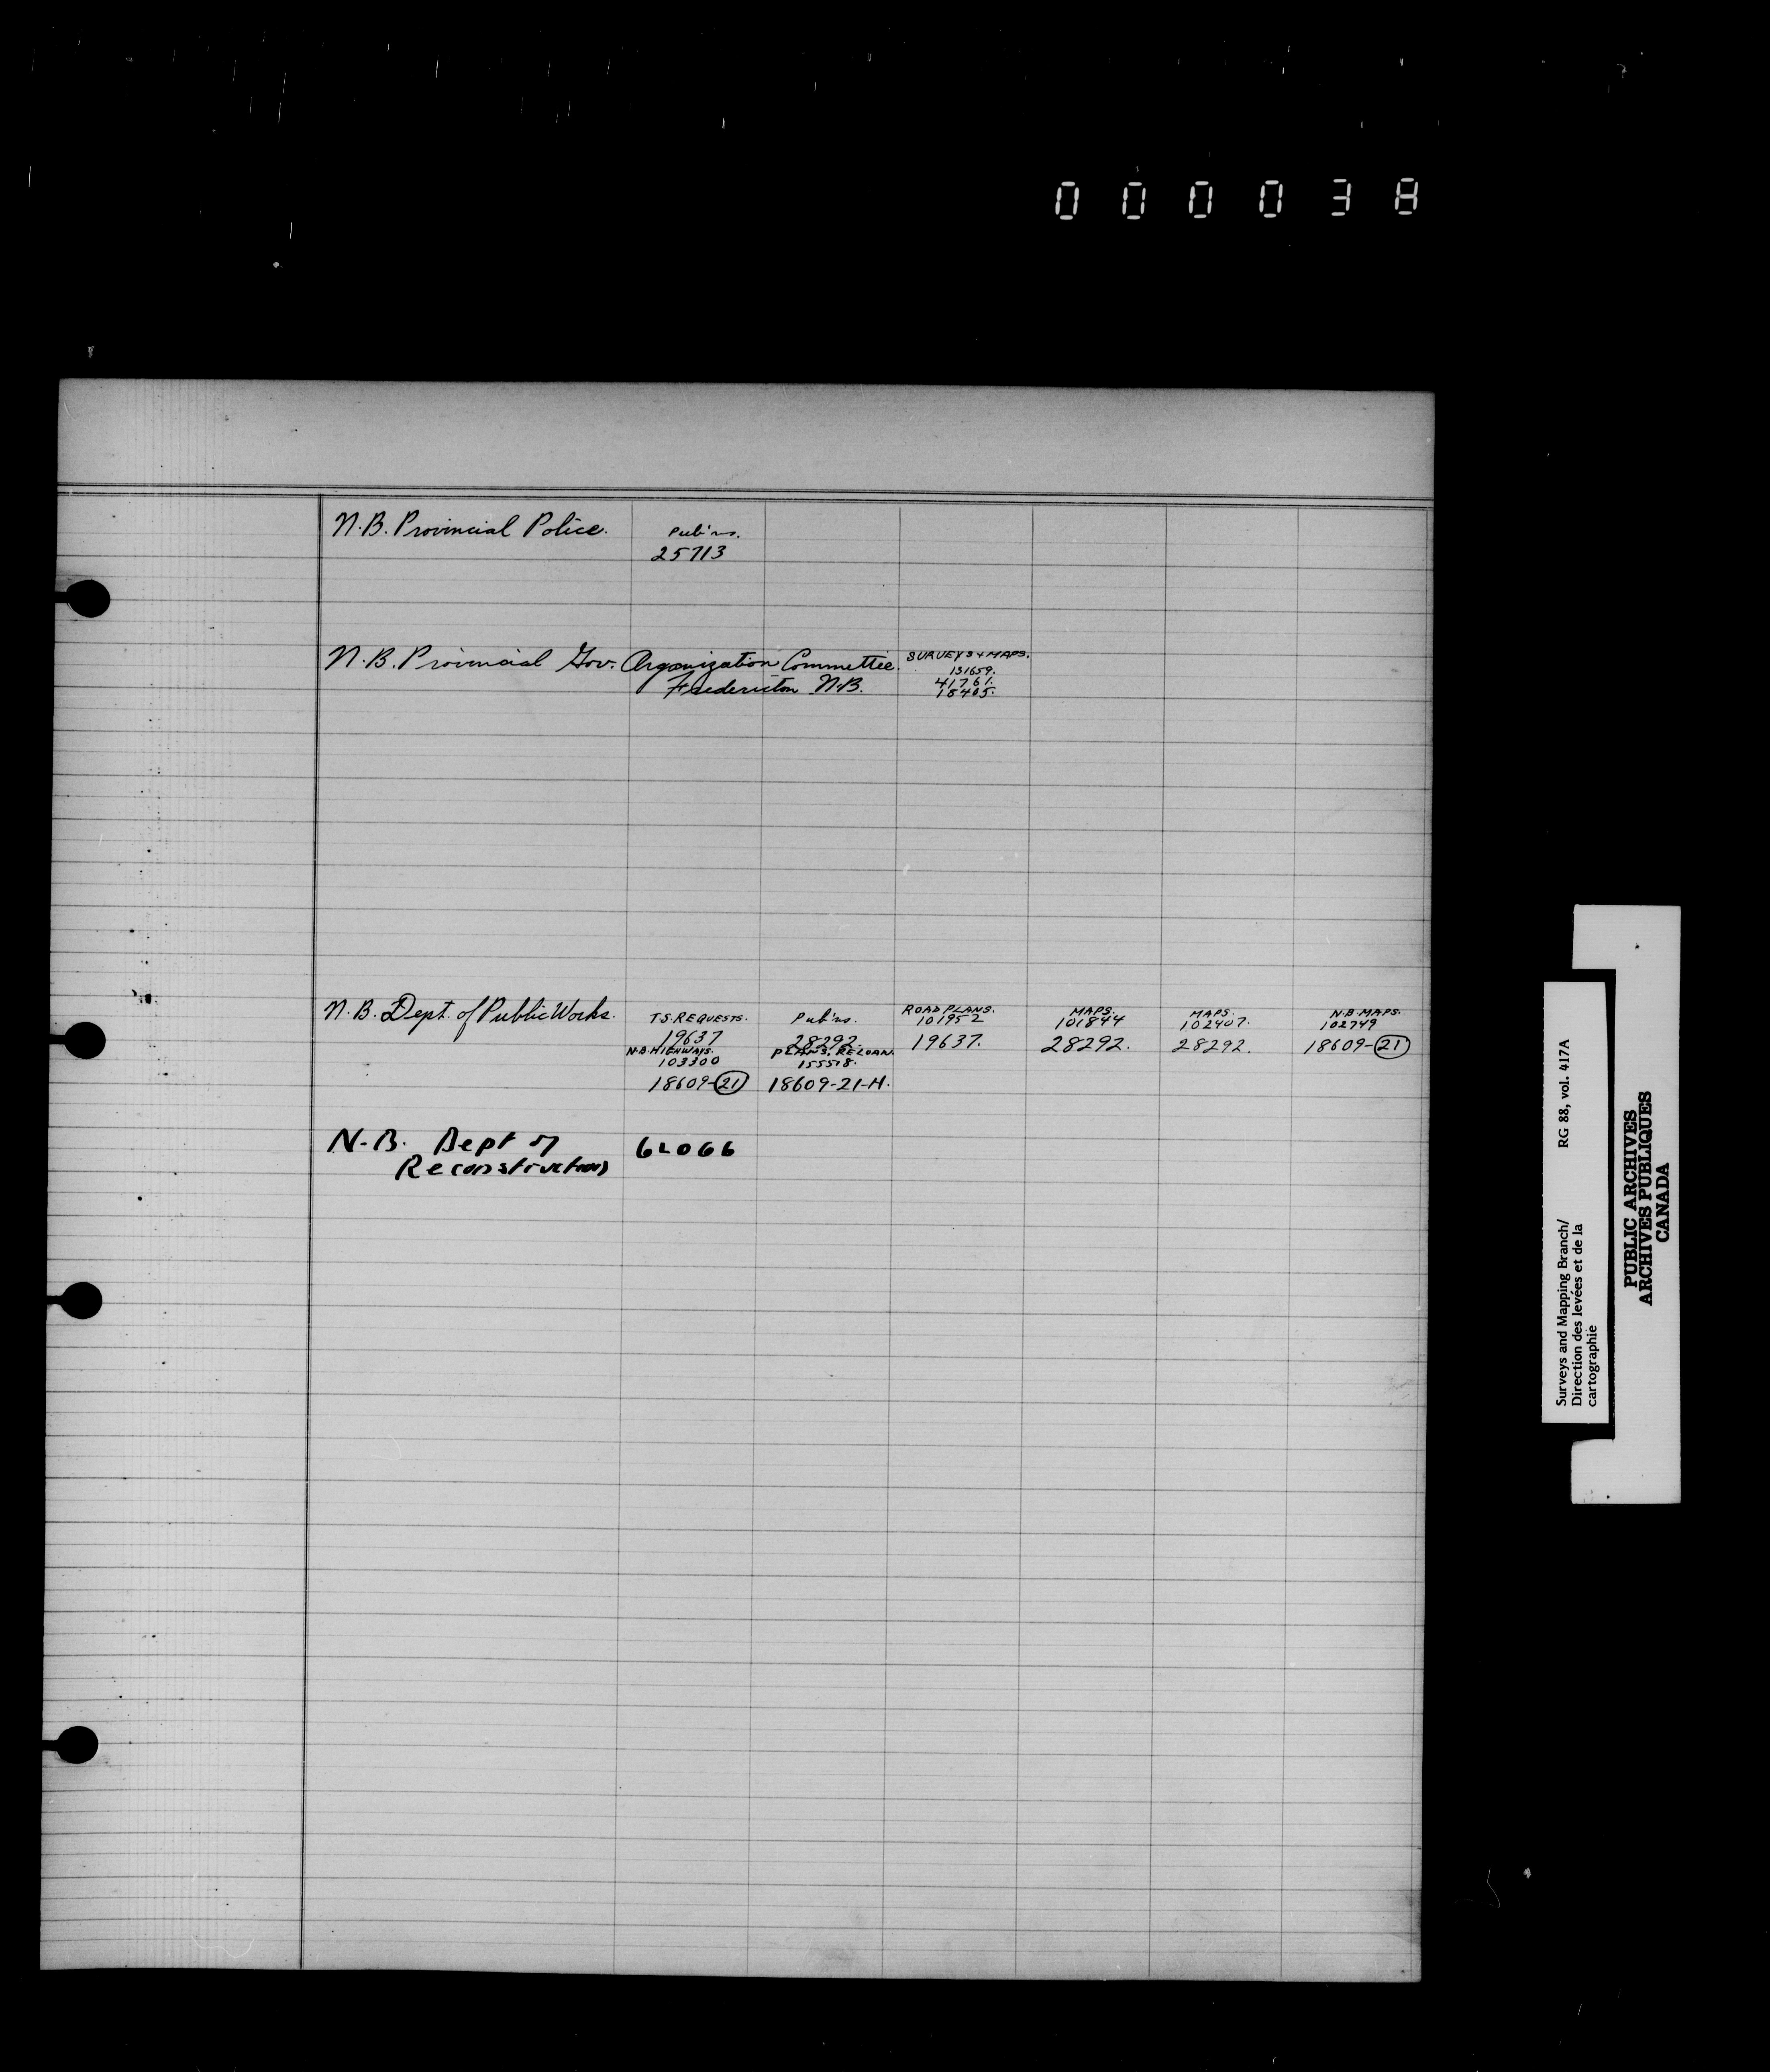 000038
N.B. Provincial Police.
Pub'ns.
25713
N.B. Provincial Gov. Organization Committee.
Fredericton N.B.
SURVEYS & MAPS.
131659.
41761.
18405.
N.B. Dept. of Public Works.
T.S. REQUESTS.
19637
N.B. HIGHWAYS.
103300
18609-21
Pub'ns.
28292.
PLANS, RELOAN.
155518.
18609-21-H.
ROAD PLANS.
101952
19637.
MAPS.
101844
28292.
MAPS.
102407.
28292.
N.B. MAPS.
102749
18609-21
N.B. Dept of
Reconstruction
Surveys and Mapping Branch/
Direction des levées et de la
cartographie
RG 88, vol. 417A
PUBLIC ARCHIVES
ARCHIVES PUBLIQUES
CANADA